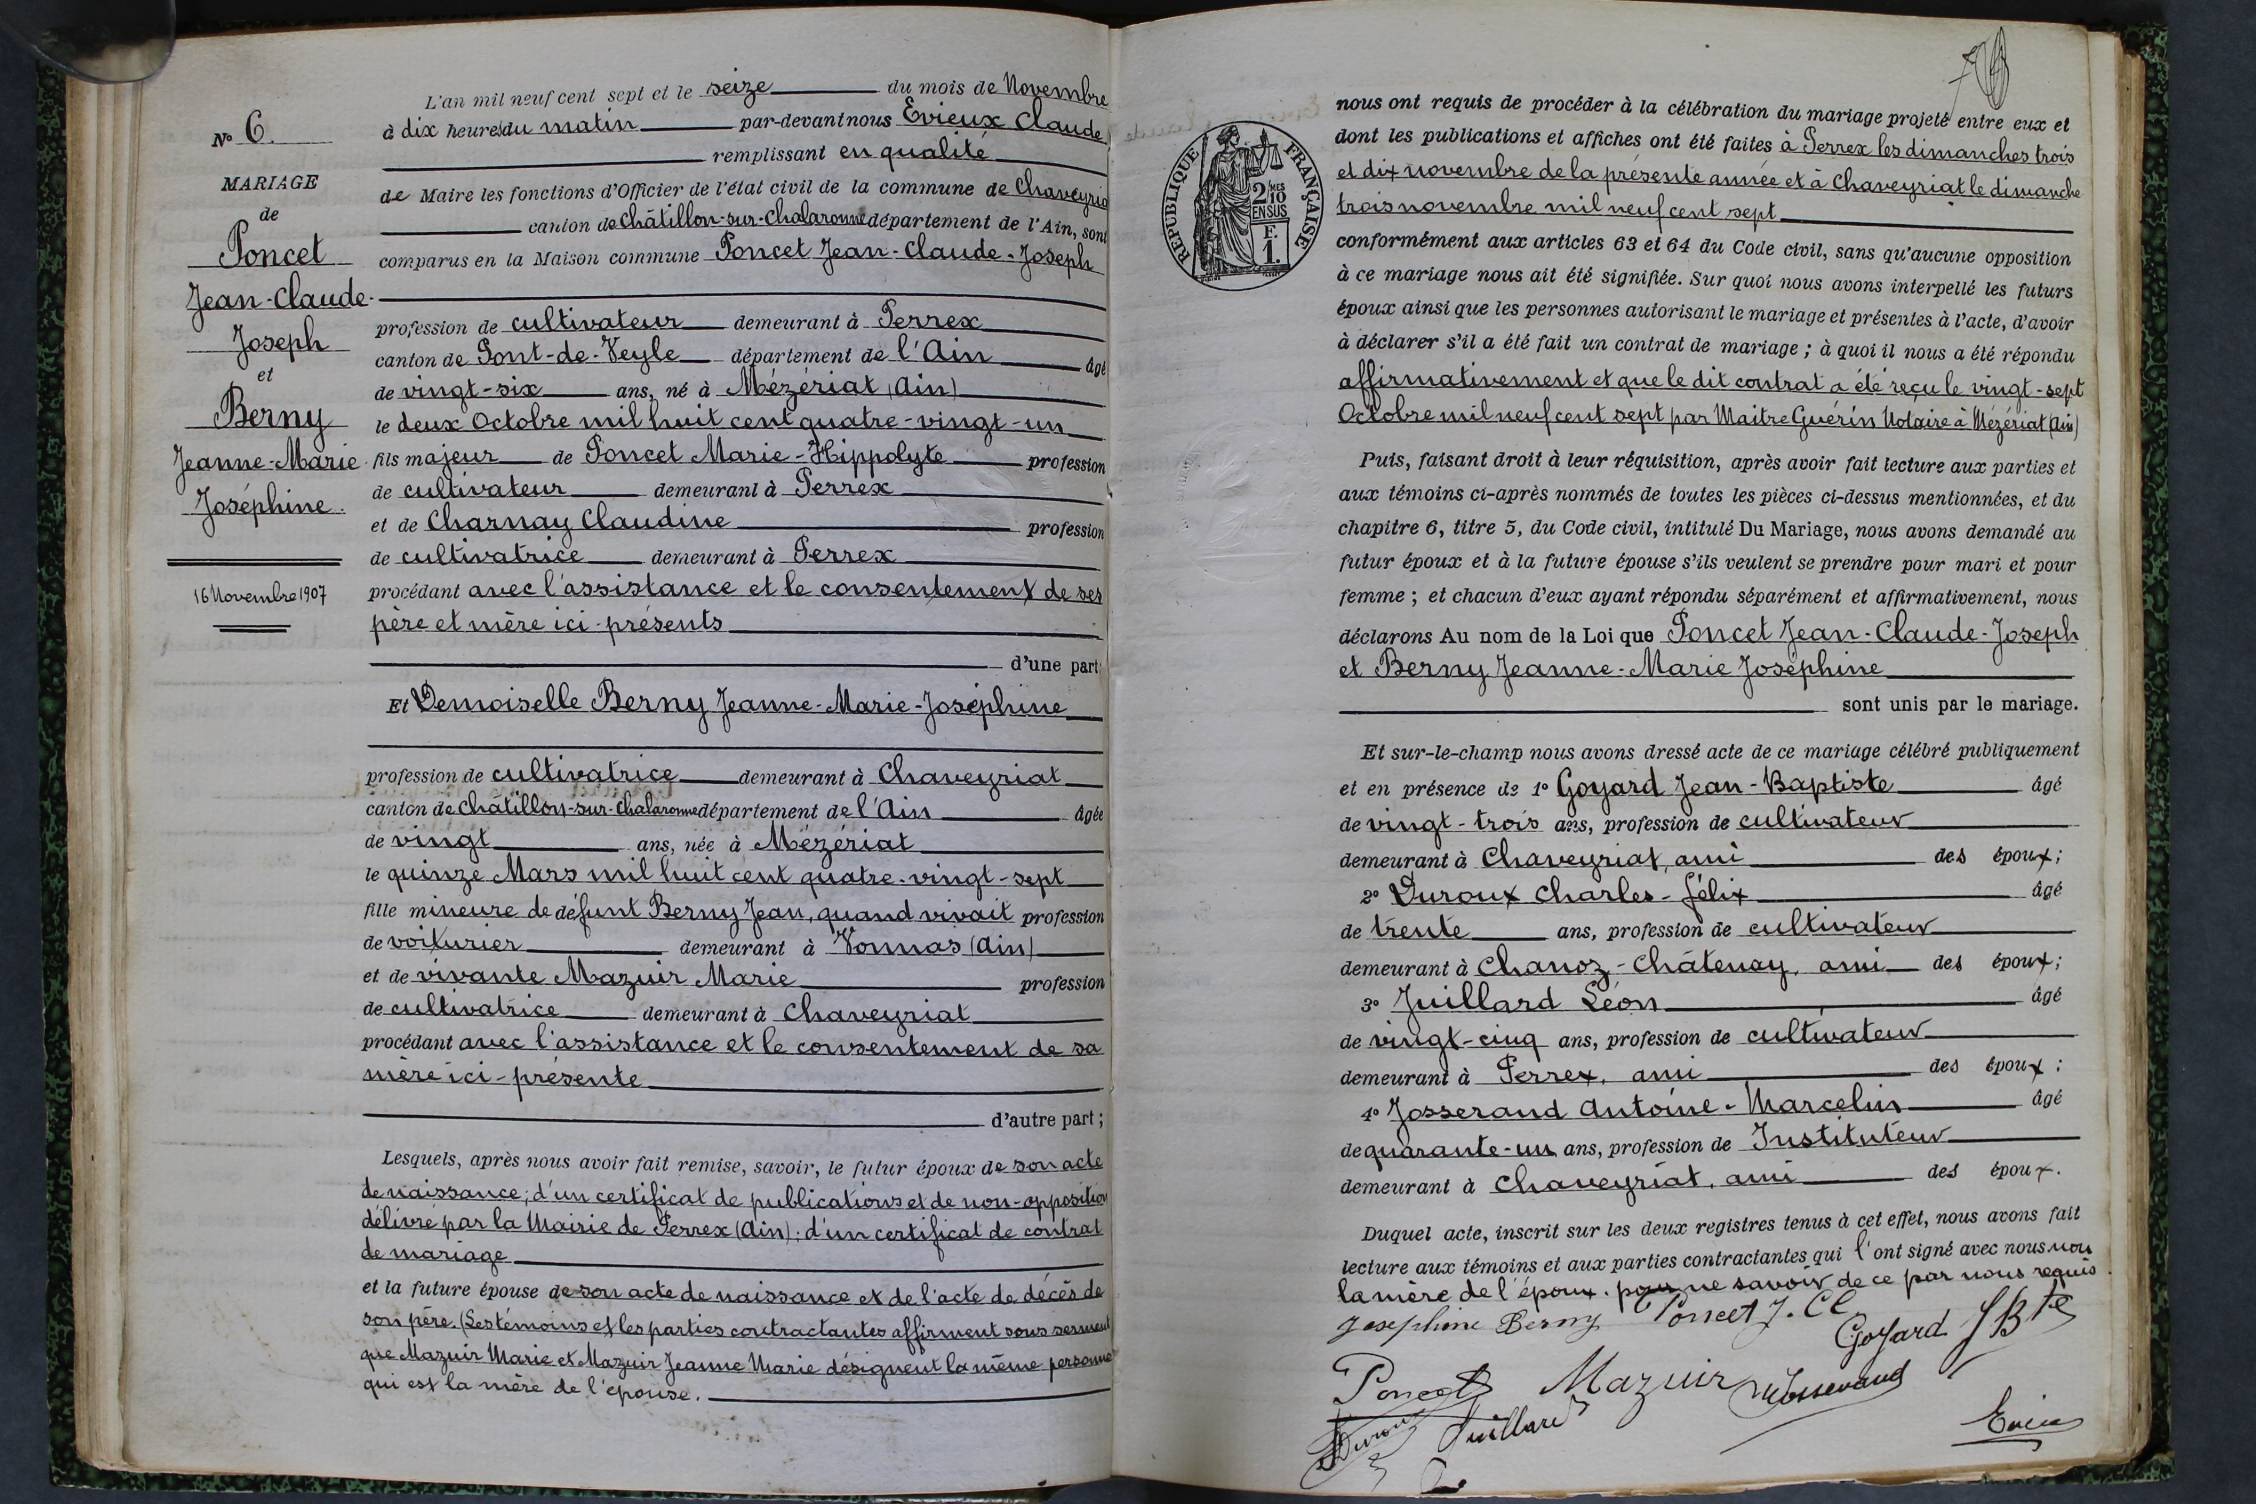 N° 6.
MARIAGE
de
Poncet
Jean-Claude-
Joseph
et
Berny
Jeanne-Marie
Joséphine.
16 Novembre 1907
L'an mil neuf cent sept et le seize du mois de Novembre
à dix heures du matin par-devant nous Evieux Claude
remplissant en qualité
de Maire les fonctions d'Officier de l'état civil de la commune de Chaveyria
canton de Châtillon-sur-Chalaronne département de l'Ain, sont
comparus en la Maison commune Poncet Jean-Claude-Joseph
profession de cultivateur demeurant à Perrex
canton de Pont-de-Veyle département de l'Ain âgé
de vingt-six ans, né à Mézériat (Ain)
le deux Octobre mil huit cent quatre-vingt-un
fils majeur de Poncet Marie-Hippolyte profession
de cultivateur demeurant à Perrex
et de Charnay Claudine profession
de cultivatrice demeurant à Perrex
procédant avec l'assistance et le consentement de ses
père et mère ici-présents
d'une part
Et Demoiselle Berny Jeanne-Marie-Joséphine
profession de cultivatrice demeurant à Chaveyriat
canton de Châtillon-sur-Chalaronne département de l'Ain âgée
de vingt ans, née à Mézériat
le quinze Mars mil huit cent quatre-vingt-sept
fille mineure de défunt Berny Jean, quand vivait profession
de voiturier demeurant à Vonnas (Ain)
et de vivante Mazuir Marie profession
de cultivatrice demeurant à Chaveyriat
procédant avec l'assistance et le consentement de sa
mère ici-présente
d'autre part ;
Lesquels, après nous avoir fait remise, savoir, le futur époux de son acte
de naissance; d'un certificat de publications et de non-opposition
délivré par la Mairie de Perrex (Ain); d'un certificat de contrat
de mariage
et la future épouse de son acte de naissance et de l'acte de décès de
son père. (Les témoins et les parties contractantes affirment sous serment
que Mazuir Marie et Mazuir Jeanne Marie désignent la même personne
qui est la mère de l'épouse.
RÉPUBLIQUE FRANÇAISE
2/MES
10
EN SUS
F.
1.
nous ont requis de procéder à la célébration du mariage projeté entre eux et
dont les publications et affiches ont été faites à Perrex les dimanches trois
et dix novembre de la présente année et à Chaveyriat le dimanche
trois novembre mil neuf cent sept
conformément aux articles 63 et 64 du Code civil, sans qu'aucune opposition
à ce mariage nous ait été signifiée. Sur quoi nous avons interpellé les futurs
époux ainsi que les personnes autorisant le mariage et présentes à l'acte, d'avoir
à déclarer s'il a été fait un contrat de mariage ; à quoi il nous a été répondu
affirmativement et que le dit contrat a été reçu le vingt-sept
Octobre mil neuf cent sept par Maitre Guérin Notaire à Mézériat (Ain)
Puis, faisant droit à leur réquisition, après avoir fait lecture aux parties et
aux témoins ci-après nommés de toutes les pièces ci-dessus mentionnées, et du
chapitre 6, titre 5, du Code civil, intitulé Du Mariage, nous avons demandé au
futur époux et à la future épouse s'ils veulent se prendre pour mari et pour
femme ; et chacun d'eux ayant répondu séparément et affirmativement, nous
déclarons Au nom de la Loi que Poncet Jean-Claude-Joseph
et Berny Jeanne-Marie Joséphine
sont unis par le mariage.
Et sur-le-champ nous avons dressé acte de ce mariage célébré publiquement
et en présence de 1° Goyard Jean-Baptiste âgé
de vingt-trois ans, profession de cultivateur
demeurant à Chaveyriat, ami des époux ;
2° Duroux Charles-Félix âgé
de trente ans, profession de cultivateur
demeurant à Chanoz-Châtenay, ami des époux ;
3° Juillard Léon âgé
de vingt-cinq ans, profession de cultivateur
demeurant à Perrex, ami des époux ;
4° Josserand Antoine-Marcelin âgé
de quarante-un ans, profession de Instituteur
demeurant à Chaveyriat, ami des époux.
Duquel acte, inscrit sur les deux registres tenus à cet effet, nous avons fait
lecture aux témoins et aux parties contractantes qui l'ont signé avec nous non
la mère de l'époux. pour ne savoir de ce par nous requis.
Josephine Berny Poncet J. Cl
Goyard J Bte
Poncet Mazuir Josserand
Duroux Juillard
Evieux